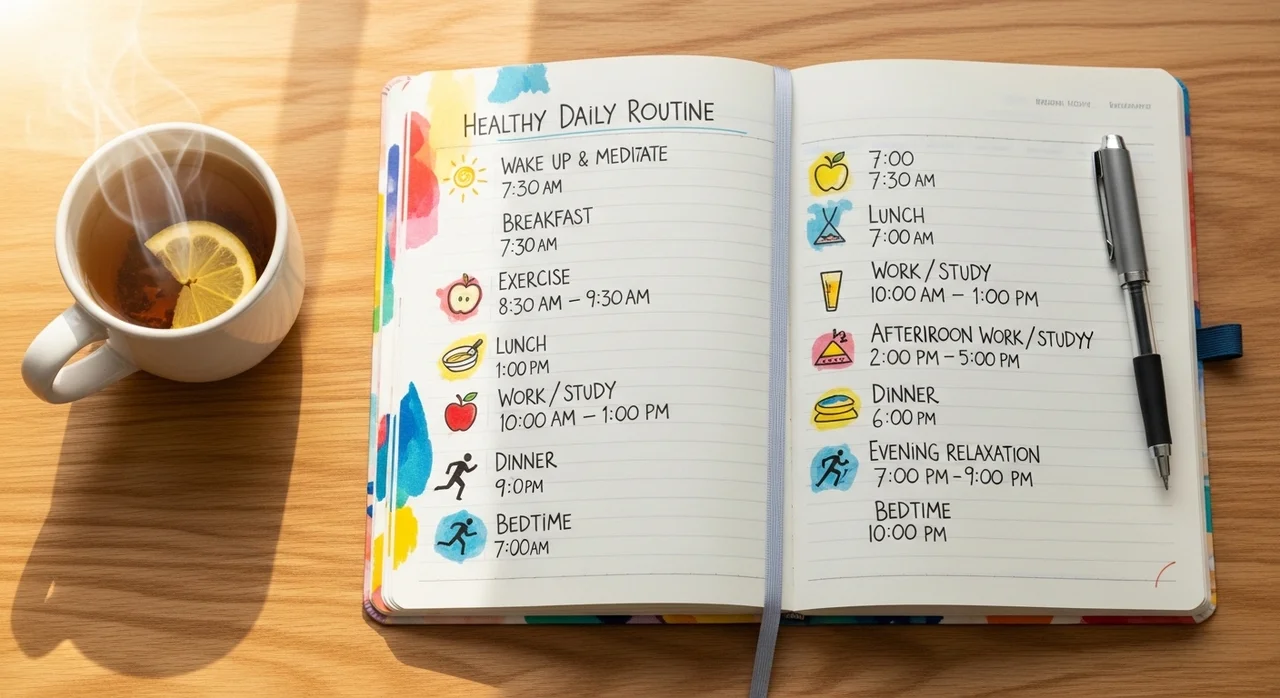 HEALTHY DAILY ROUTINE
WAKE UP & MEDITATE
7:30 AM
BREAKFAST
7:30 AM
EXERCISE
8:30 AM – 9:30 AM
LUNCH
1:00 PM
WORK / STUDY
10:00 AM – 1:00 PM
DINNER
9:0PM
BEDTIME
7:00AM
7:00
7:30 AM
LUNCH
7:00 AM
WORK / STUDY
10:00 AM – 1:00 PM
AFTERIROON WORK/STUDYY
2:00 PM – 5:00 PM
DINNER
6:00 PM
EVENING RELAXATION
7:00 PM – 9:00 PM
BEDTIME
10:00 PM